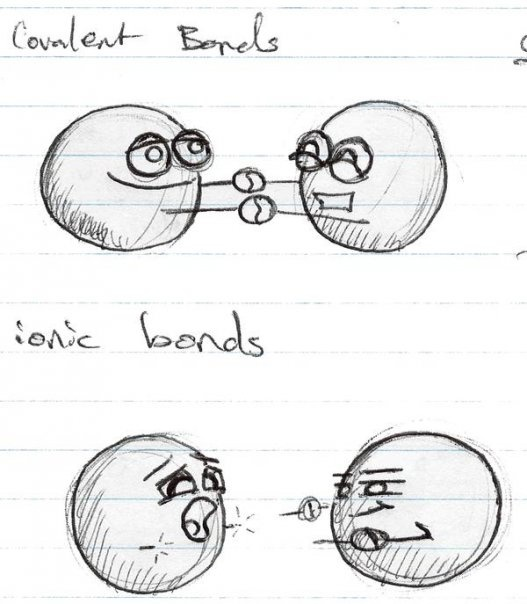 Covalent Bonds
ionic bonds